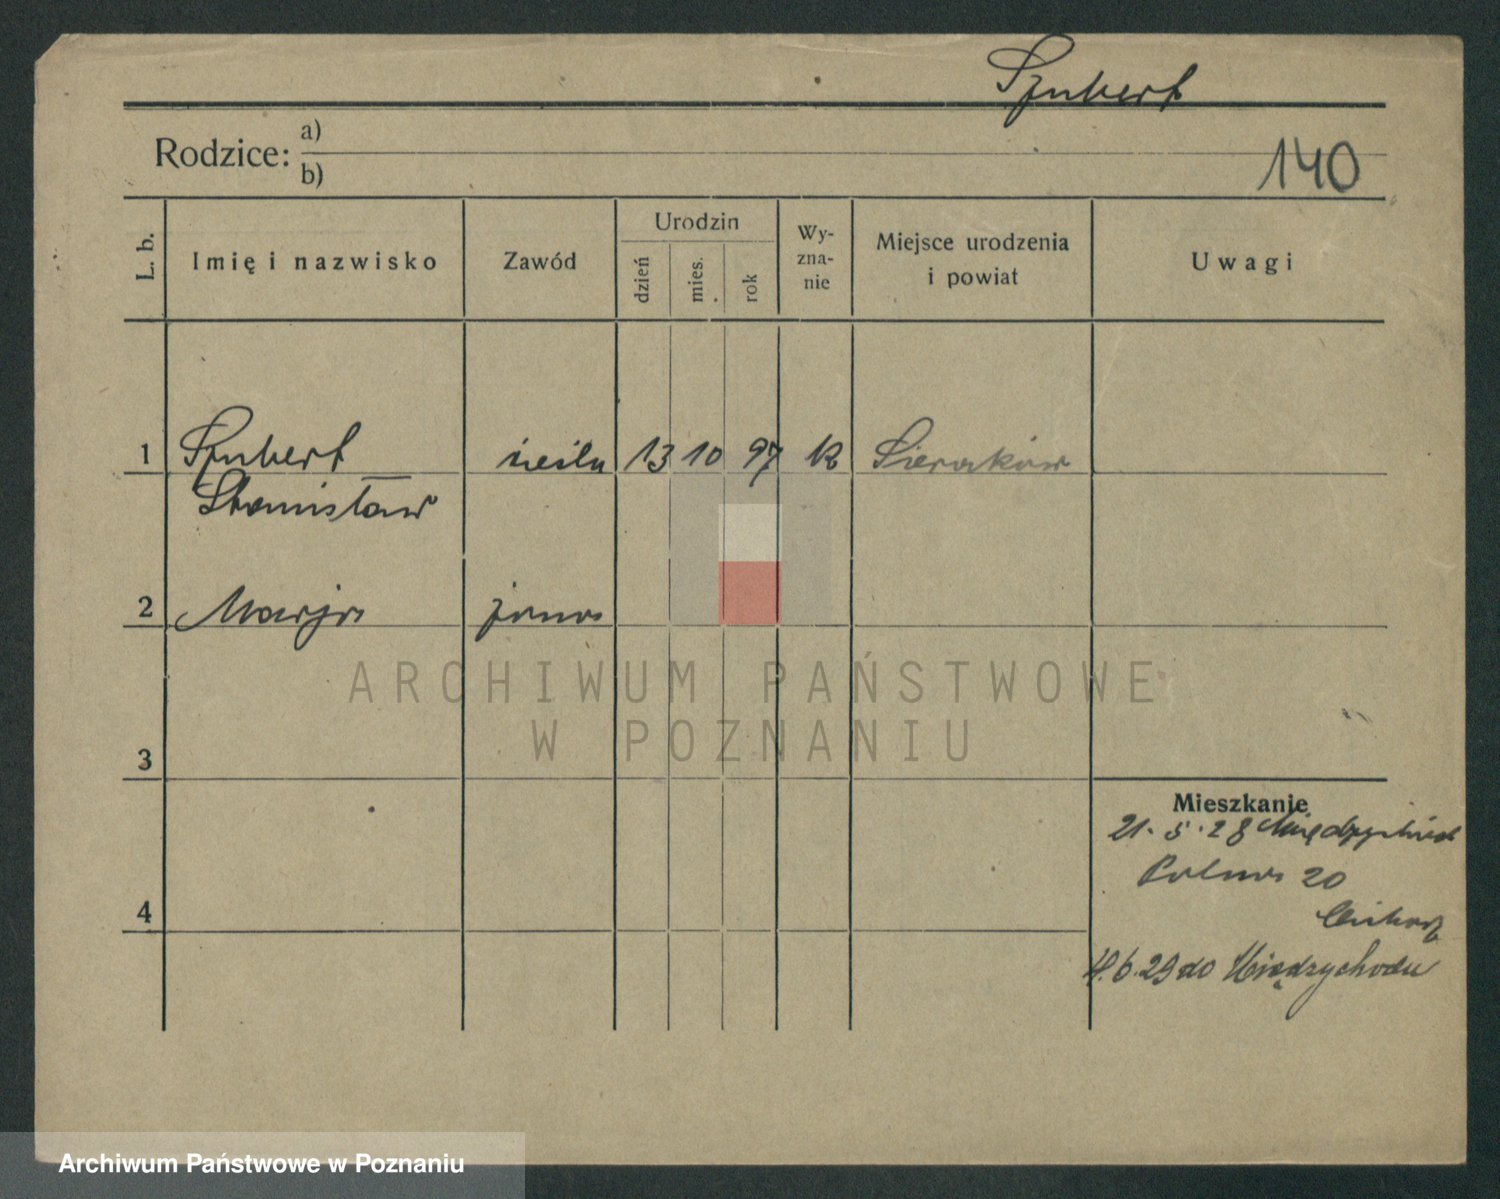 Szubert
Rodzice: a)
b)
140
L. b.
Imię i nazwisko
Zawód
Urodzin
dzień
mies.
rok
Wy-
zna-
nie
Miejsce urodzenia
i powiat
Uwagi
1 Szubert 13 10 97 Sieraków
Stanisław
2 Marja żona
ARCHIWUM PAŃSTWOWE
W POZNANIU
3
Mieszkanie
21.5.28
20
4
29 do Międzychodu
Archiwum Państwowe w Poznaniu